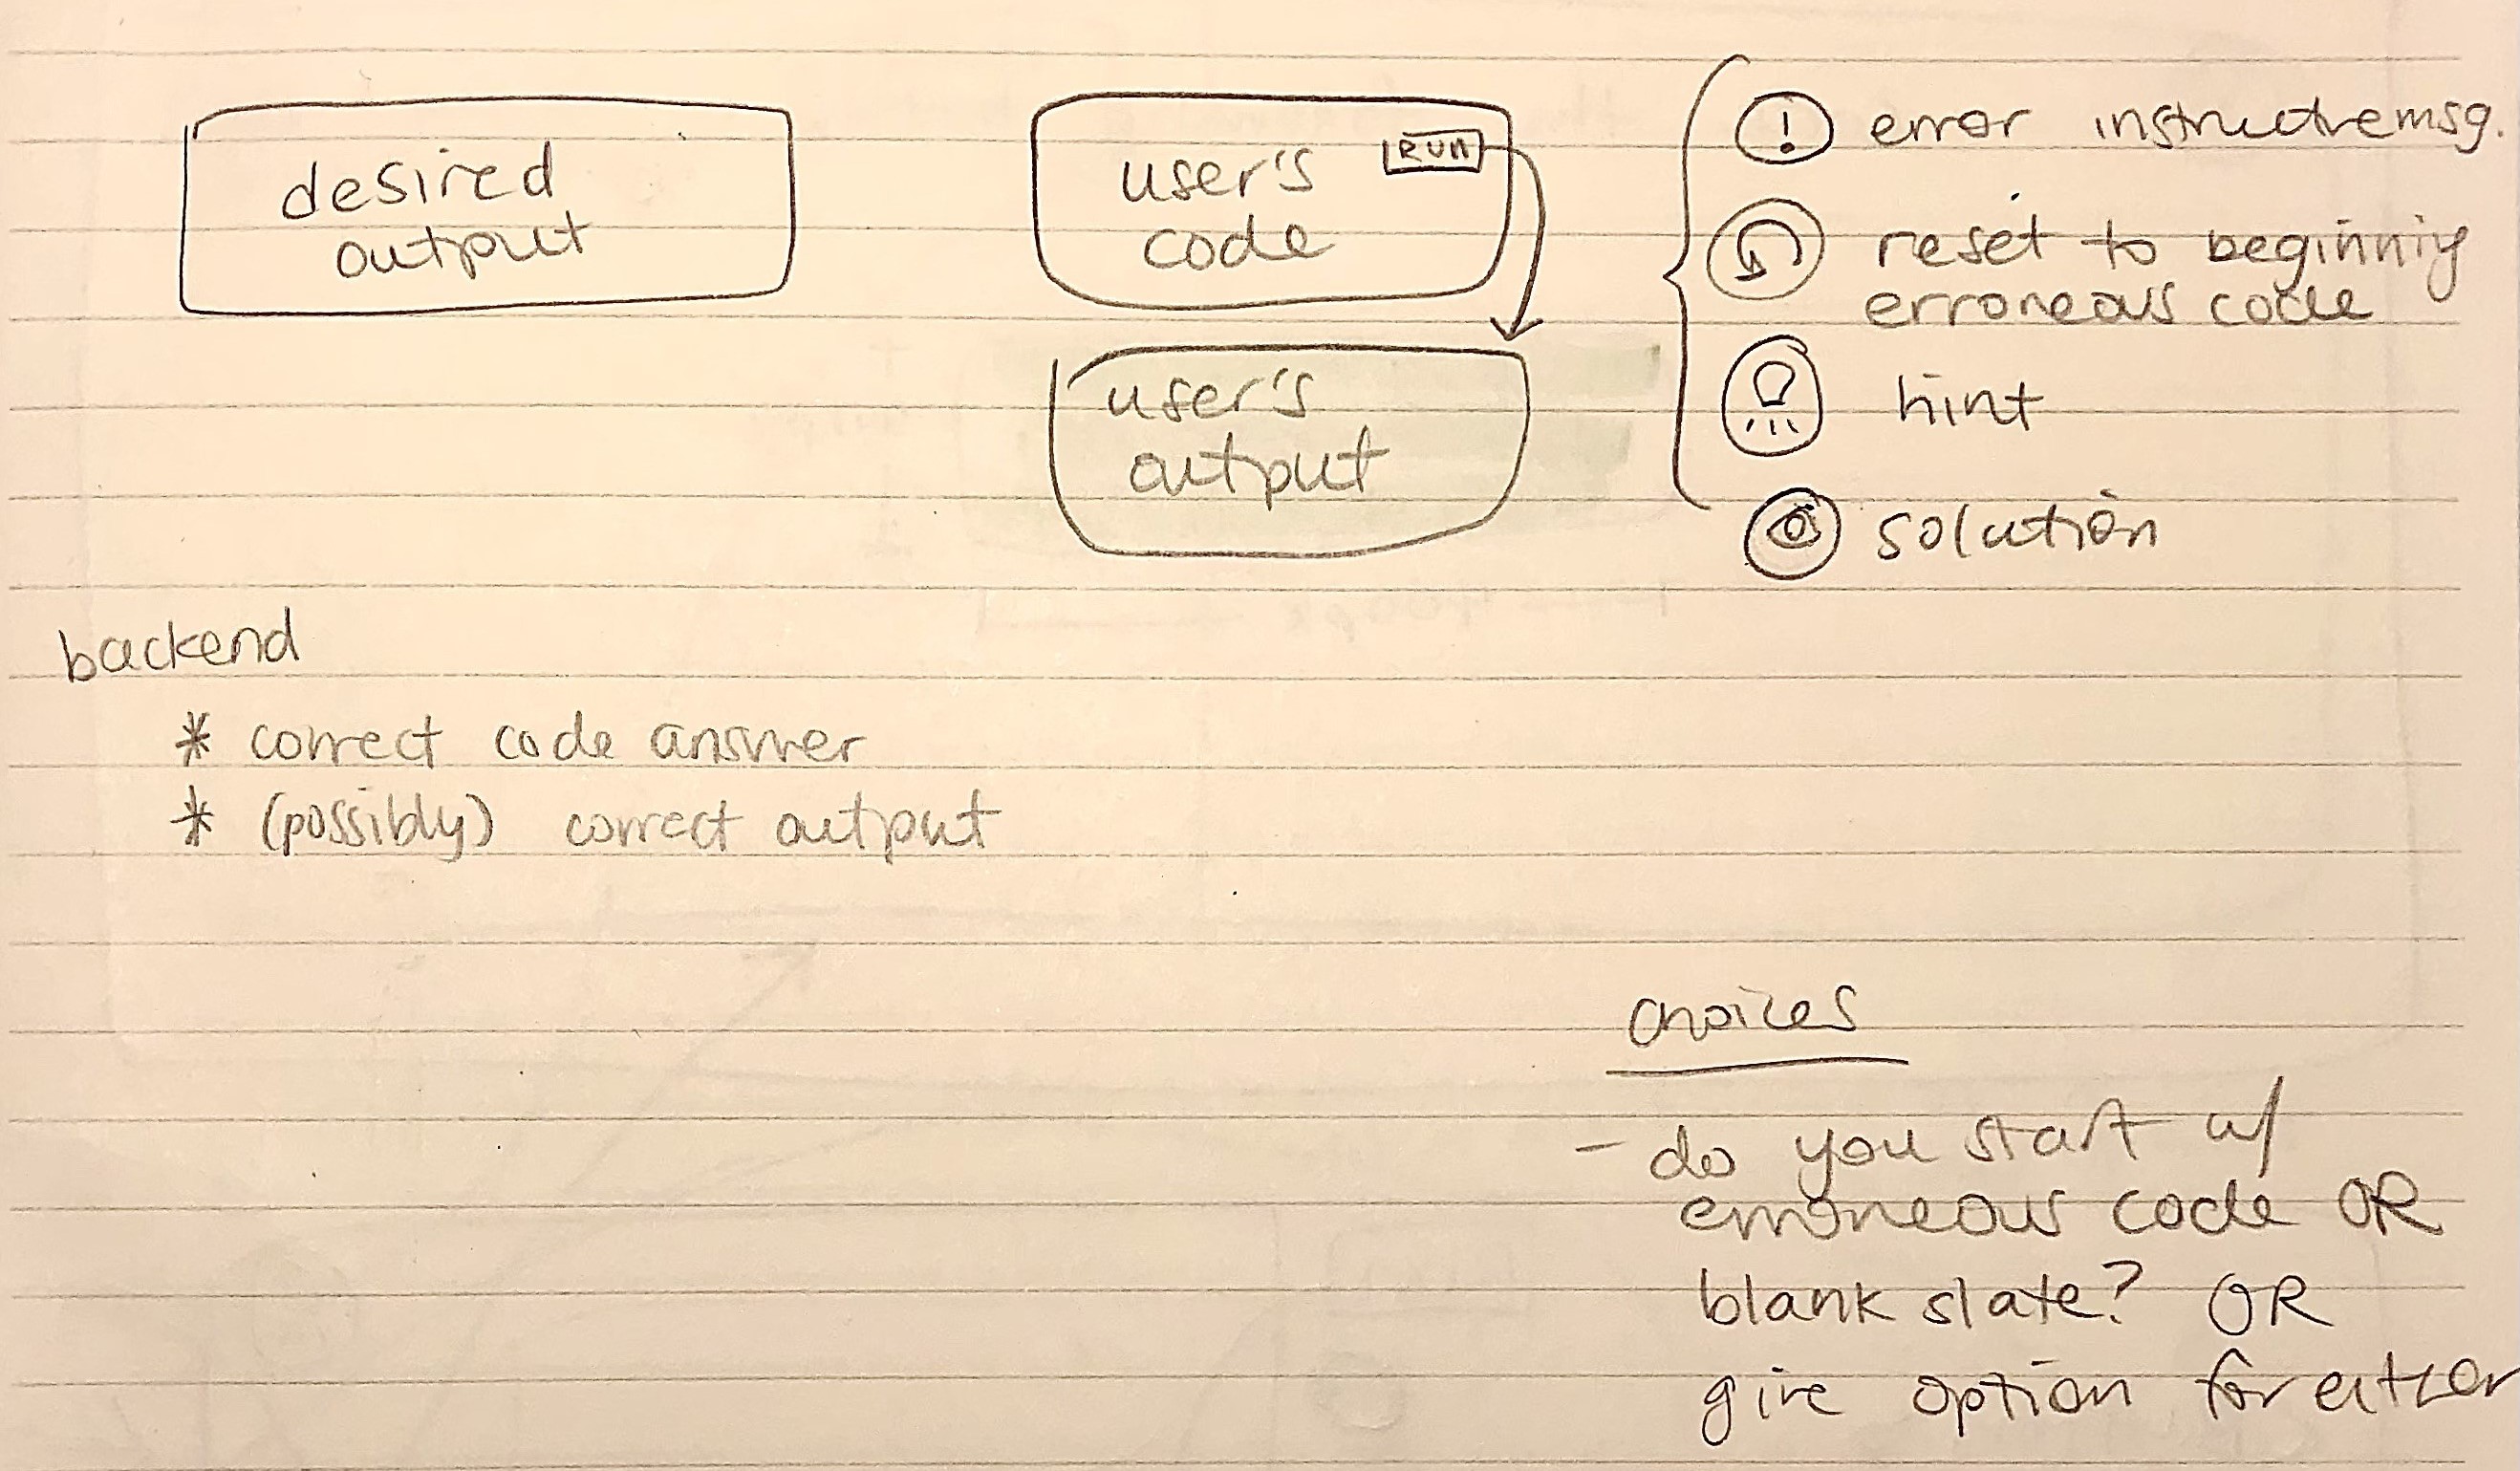 desired
output
user's
code
RUN
user's
output
! error instructive msg.
reset to beginning
erroneous code
hint
solution
backend
* correct code answer
* (possibly) correct output
choices
- do you start w/
erroneous code OR
blank slate? OR
give option for either